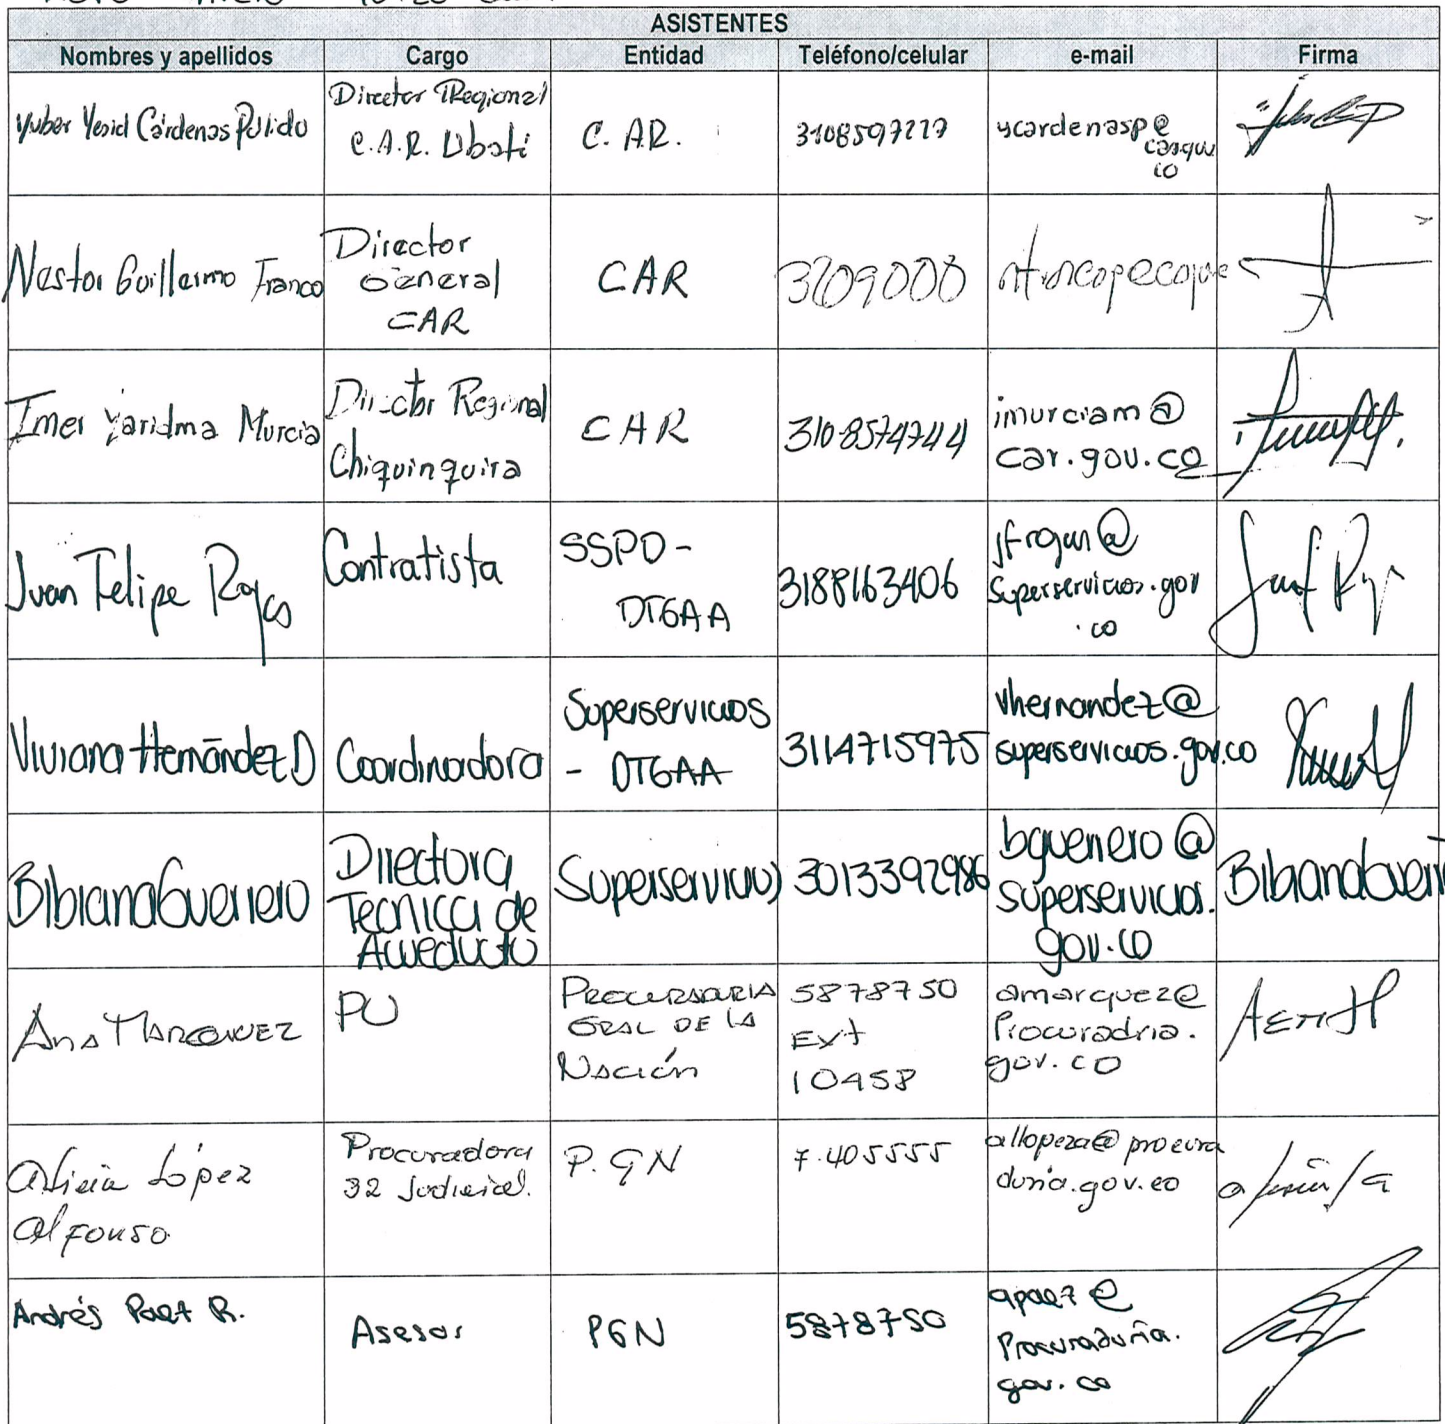 ASISTENTES
Nombres y apellidos Cargo Entidad Teléfono/celular e-mail Firma
Yuber Yesid Cárdenas Pulido
Director Regional
C.A.R. Ubaté
C. A.R.
ycardenasp@
Nestor Guillermo Franco
Director
General
CAR
CAR
3209000
Imer Yaridma Murcia
Director Regional
Chiquinquira
CAR
310-8574744
imurciam@
car.gov.co
Juan Felipe
Contratista
SSPD-
DTGAA
3188163406
Superservicios.gov
.co
Viviana Hernández D
Coordinadora
Superservicios
- DTGAA
3114715975
vhernandez@
superservicios.gov.co
Bibiana Guerrero
Directora
Tecnica de
Acueducto
Superservicios
3013392986
bguerrero@
superservicios.
gov.co
Ana Marquez
PU
Procuraduria
Gral de la
Nación
5878750
Ext
10458
amarquez@
Procuradria.
gov.co
Alicia López
Alfonso
Procuradora
32 Judicial.
P.GN
7.405555
allopeza@procura
duria.gov.co
Andrés Paez R.
Asesor
PGN
5878750
apaez@
Procuraduría.
gov.co